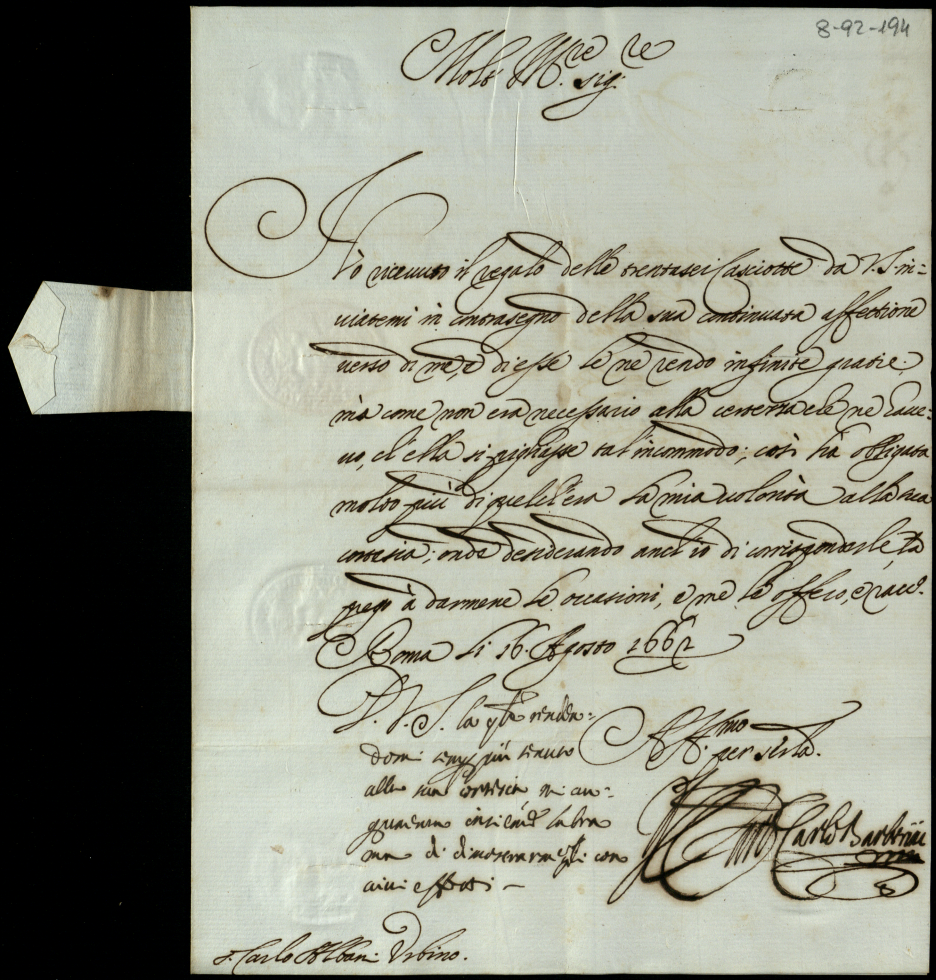 8-92-194
Molt' Ill.re Sig.re
Hò riceuuto il regalo delle trentasei Casciotte da V.S. in=
uiatemi in contrasegno della sua continuata affettione
uerso di me, e di esse le ne rendo infinite gratie.
mà come non era necessario alla certezza che ne haue=
uo, ch'ella si pigliasse tal'incommodo; così hà obligata
molto più di quell'era la mia uolontà alla sua
cortesia; onde desiderando anch'io di corrisponderle, la
prego à darmene le occasioni, e me le offero, e racc.
Roma li 16. Agosto 1662
D. V. S. la q.le renden=
domi semp. più tenuto
alla sua cortesia mi au=
gumenta insieme la bra
ma di dimostrarmegli con
uiui effetti –
Aff.mo
per ser.la.
Card. Carlo Barberini
S. Carlo Albani Vrbino.